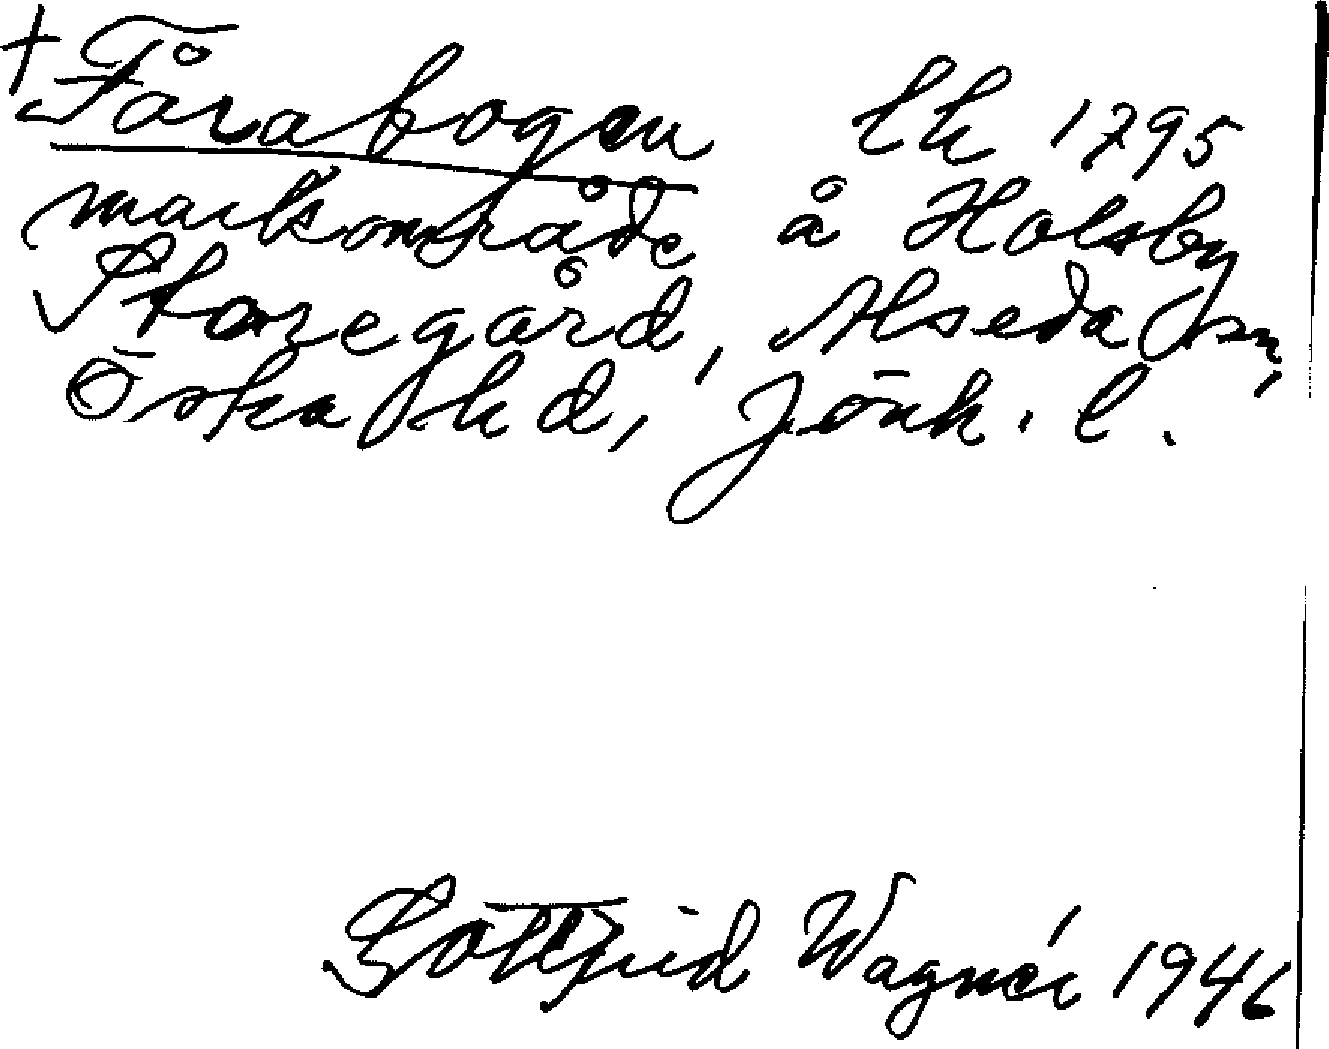 + Fårabogen lk 1795
markområde å Holsby
Storegård, Alseda sn,
Östra hd, Jönk. l.
Gottfrid Wagnér 1946